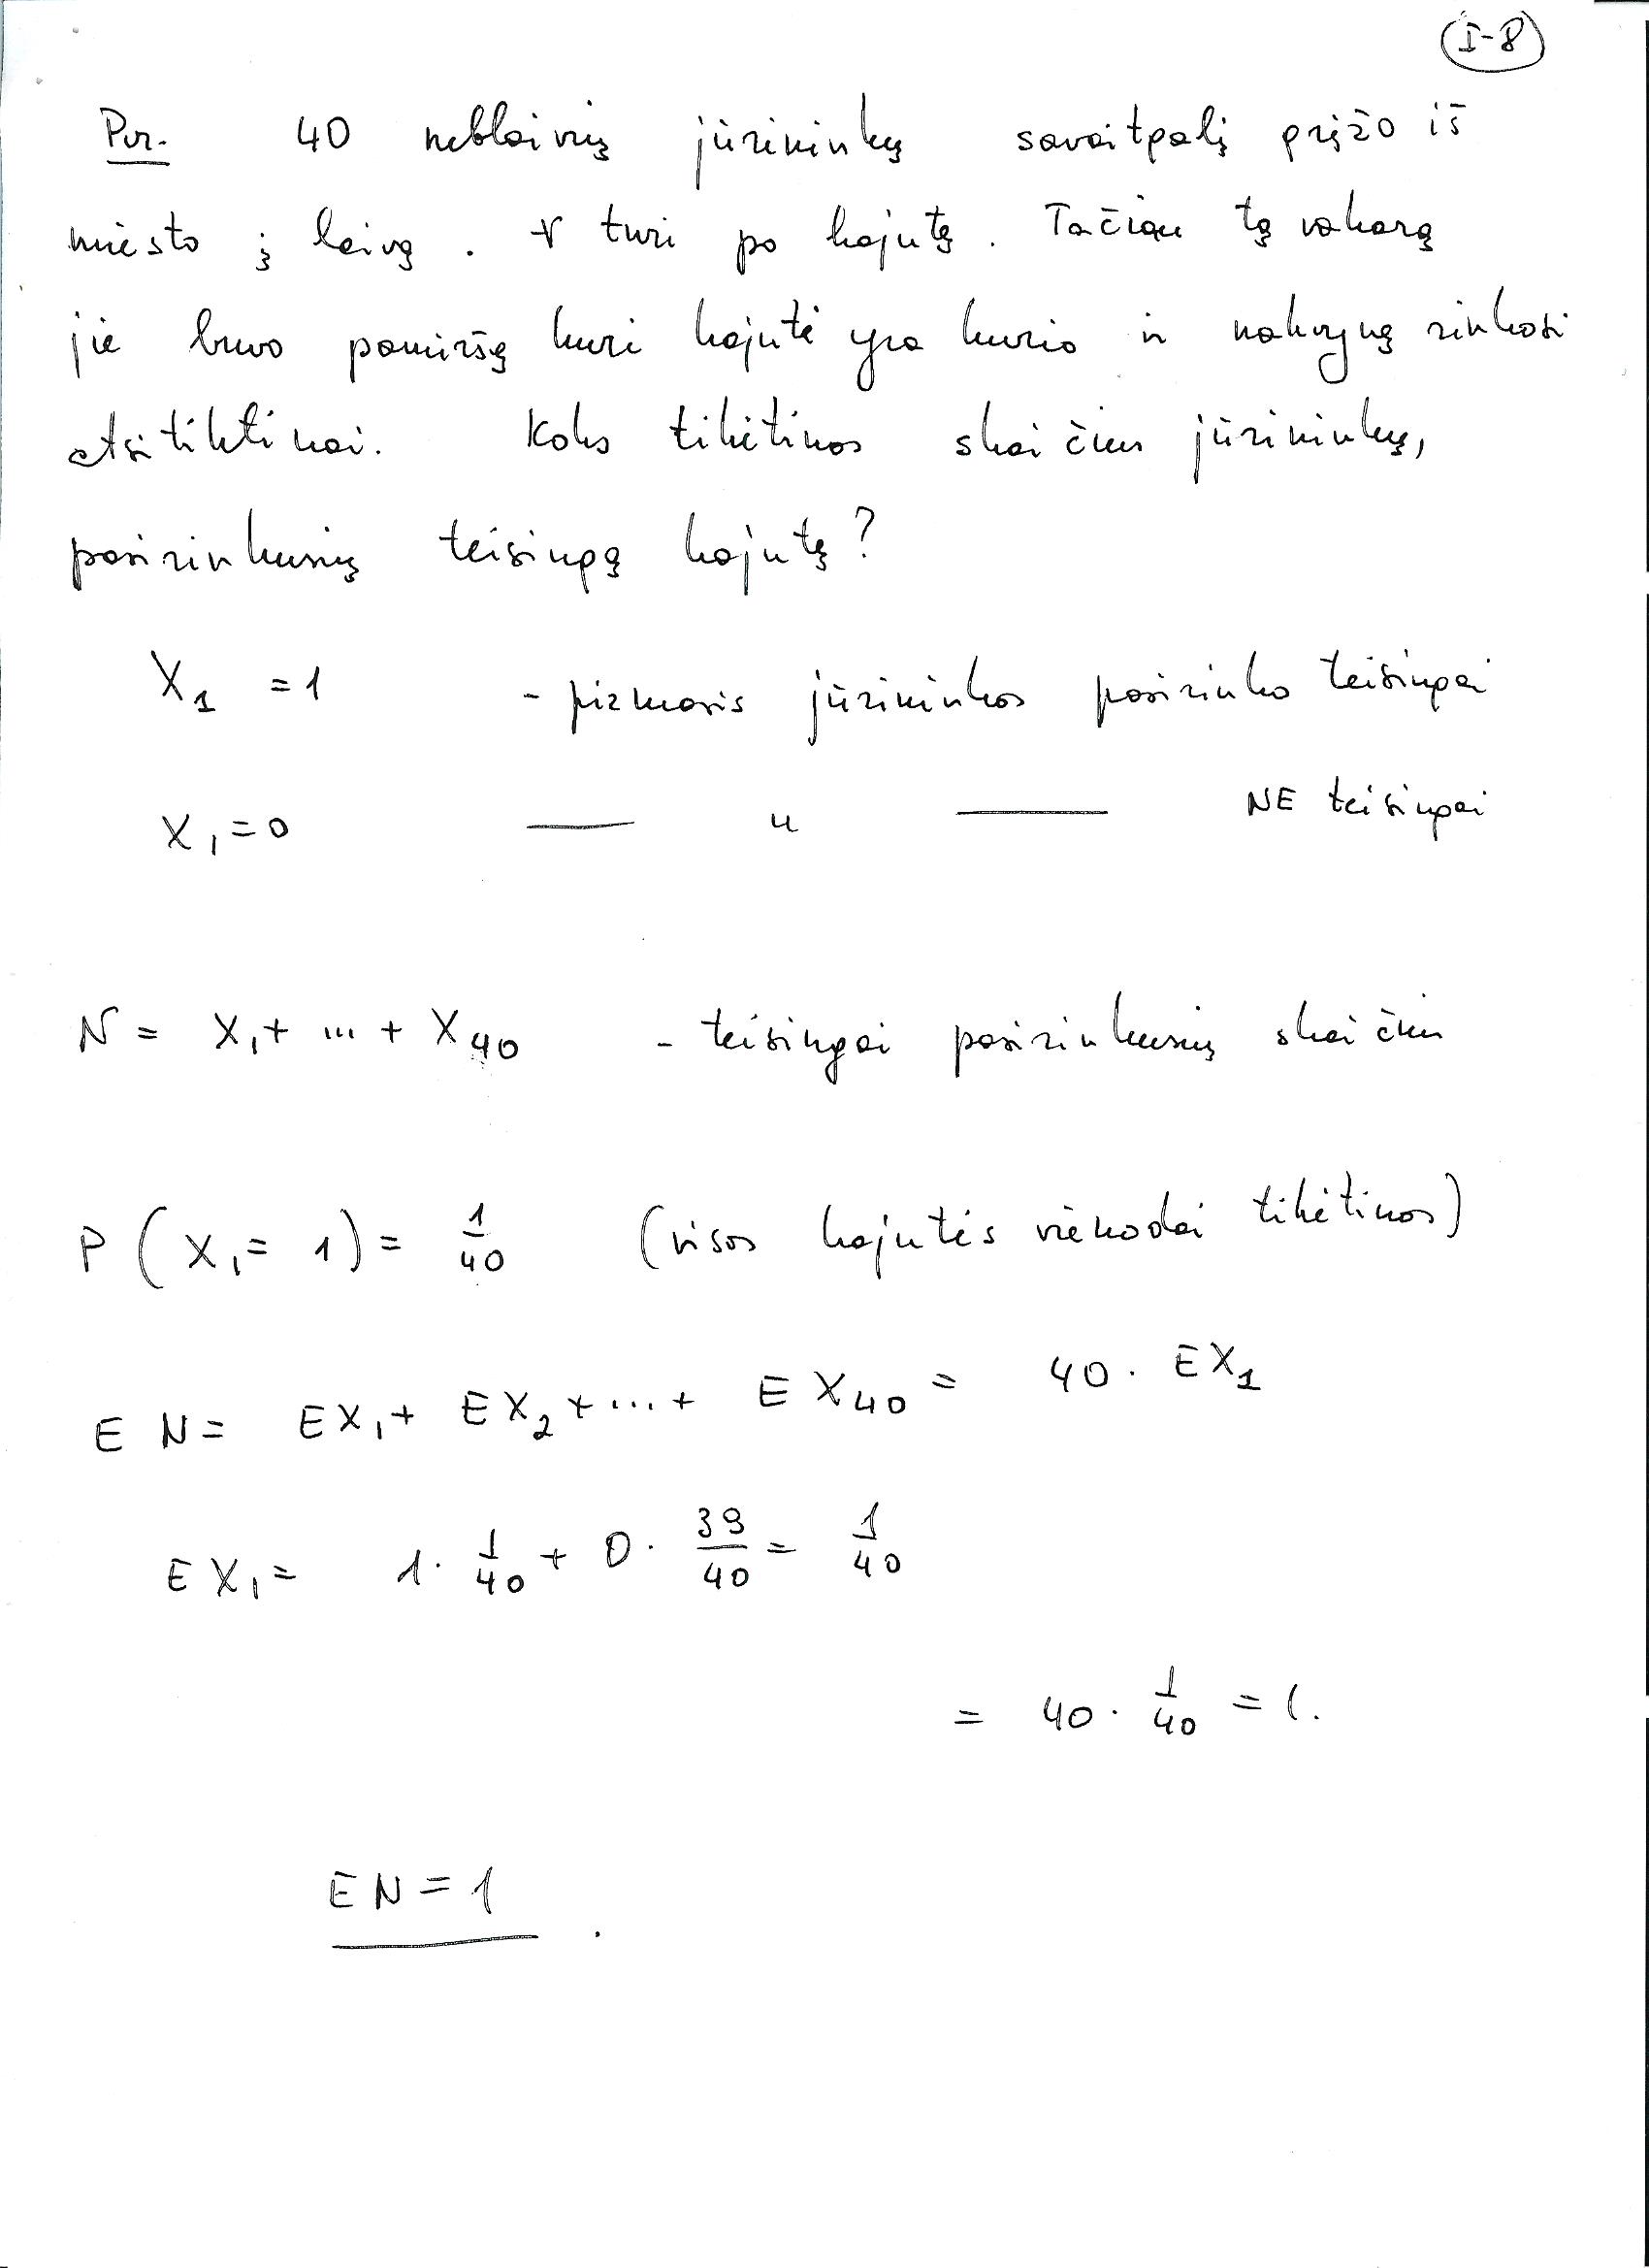 I-8
Pvz. 40 neblaivių jūrininkų savaitgalį grįžo iš
miesto į laivą. ∀ turi po kajutę. Tačiau tą vakarą
jie buvo pamiršę kuri kajutė yra kurio ir nakvynę rinkosi
atsitiktinai. Koks tikėtinas skaičius jūrininkų,
pasirinkusių teisingą kajutę?
X₁ = 1 - pirmasis jūrininkas pasirinko teisingai
X₁ = 0 — " — NE teisingai
N = X₁ + ... + X₄₀ - teisingai pasirinkusių skaičius
P(X₁ = 1) = 1/40 (visos kajutės vienodai tikėtinos)
E N = EX₁ + EX₂ + ... + EX₄₀ = 40 · EX₁
EX₁ = 1 · 1/40 + 0 · 39/40 = 1/40
= 40 · 1/40 = 1.
EN = 1.